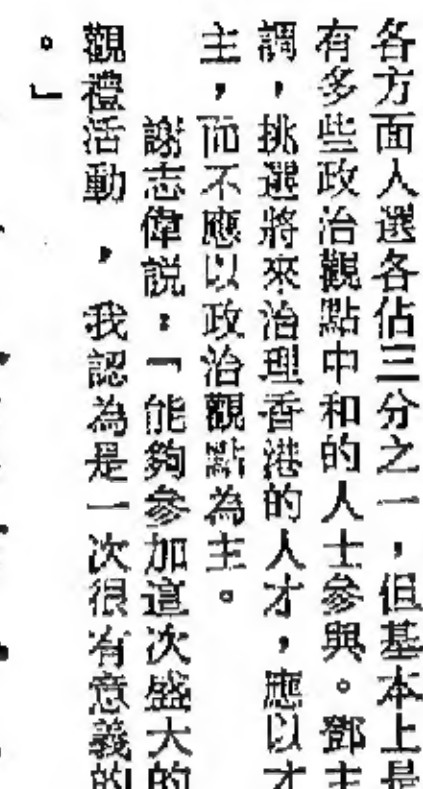 各方面人選各佔三分之一，但基本上是
有多些政治觀點中和的人士參與。鄧主
調，挑選將來治理香港的人才，應以才
主，而不應以政治觀點為主。
謝志偉説：「能夠參加這次盛大的
觀禮活動，我認為是一次很有意義的
。」